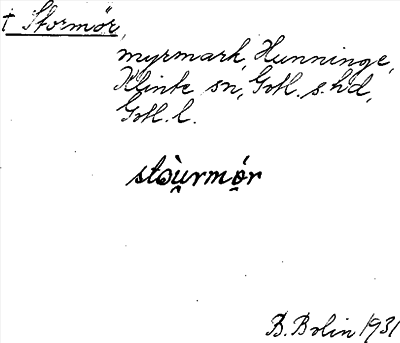 † Stormör,
myrmark, Hunninge,
Klinte sn, Gotl. s. hd,
Gotl. l.
stòu̯rmö̯r
B. Bolin 1931